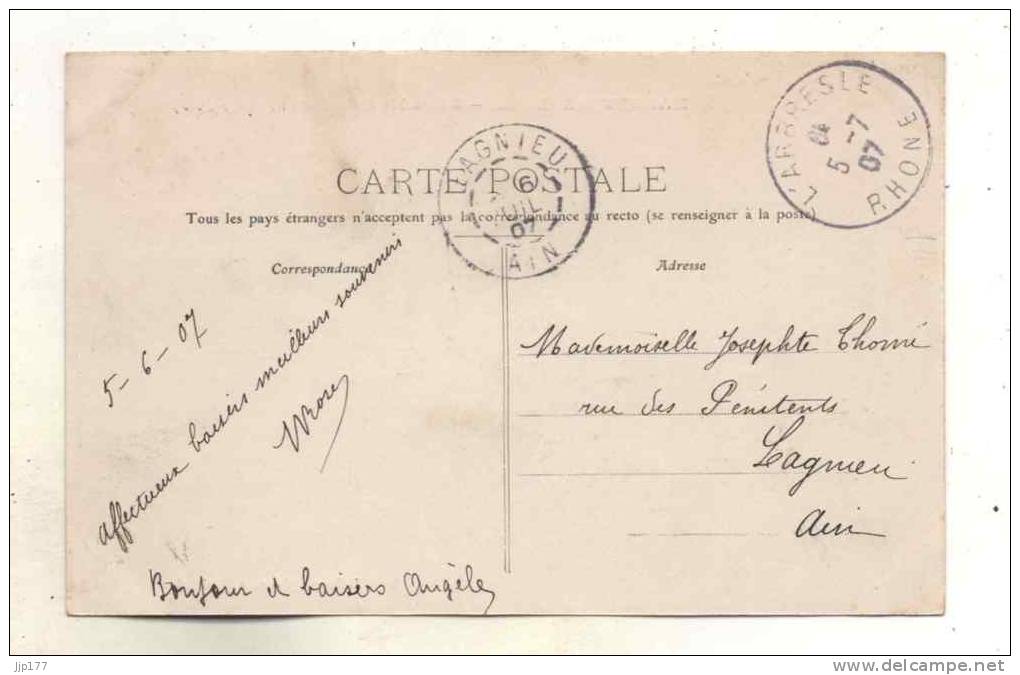 CARTE POSTALE
Tous les pays étrangers n'acceptent pas la correspondance au recto (se renseigner à la poste)
Correspondance
Adresse
L'ARBRESLE
5 -7
07
RHONE
LAGNIEU
6
JUIL
07
AIN
5-6-07
affectueux baisers meilleurs souvenirs
Rose
Bonjour et baisers Angèle
Mademoiselle Josephte Thomé
rue des Pénitents
Lagnieu
Ain
jjp177
www.delcampe.net